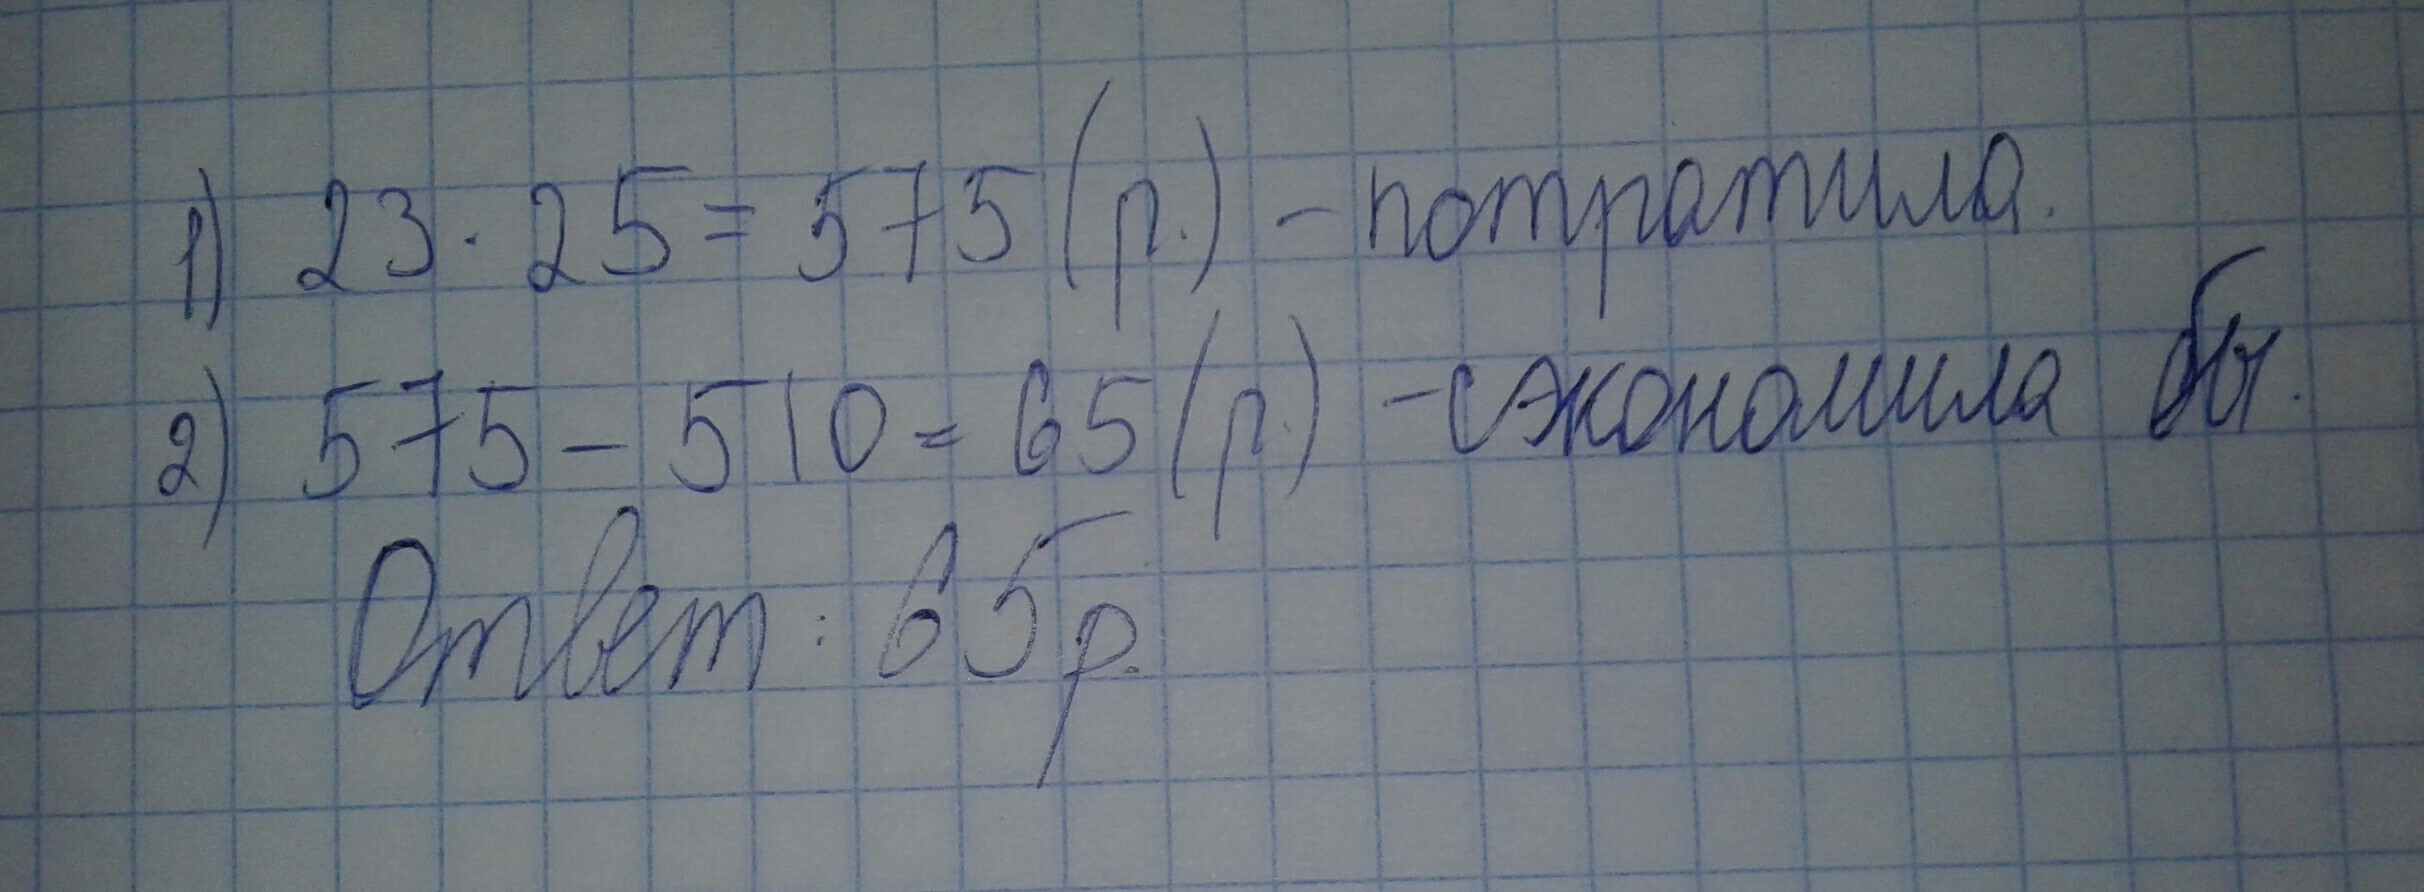 1) 23 · 25 = 575 (р.) - потратила.
2) 575 - 510 = 65 (р.) - сэкономила бы.
Ответ: 65 р.